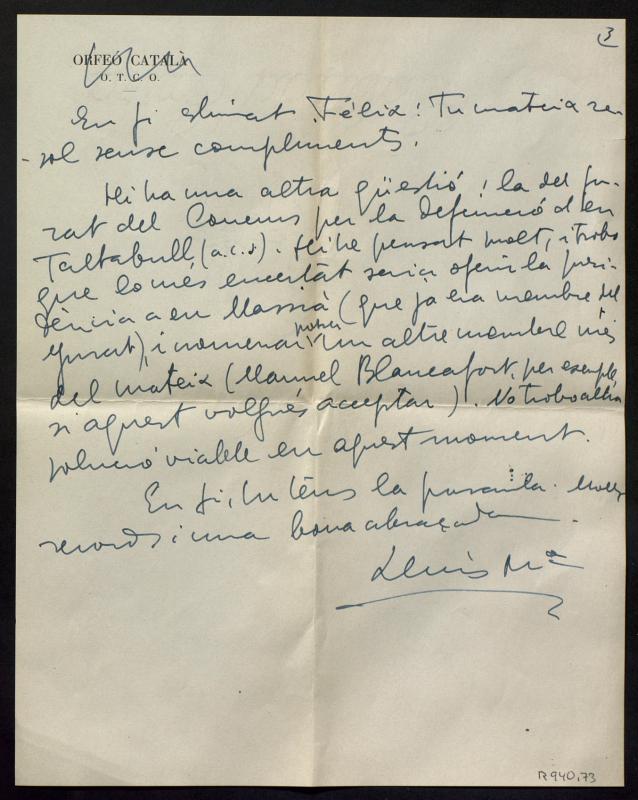 3
ORFEÓ CATALÀ
O. T. C. O.
En fi estimat Fèlix: Tu mateix re-
sol sense compliments.
Hi ha una altra qüestió: la del ju-
rat del Concurs per la defunció d'en
Taltabull (a.c.s). Hi he pensat molt, i trobo
que lo més encertat seria oferir la presi-
dència a en Massià (que ja era membre del
jurat), i nomenar potser un altre membre més
del mateix (Manuel Blancafort, per exemple,
si aquest volgués acceptar). No trobo altra
solució viable en aquest moment.
En fi, tu tens la paraula. Molts
records i una bona abraçada
Lluís Mª
R 940,73